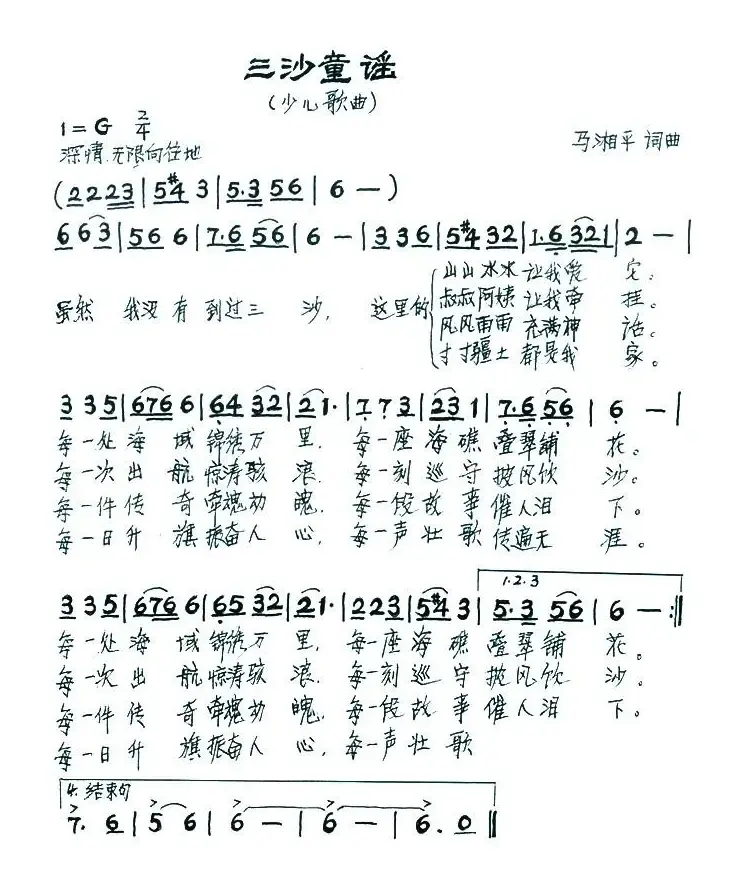 三沙童谣
(少儿歌曲)
1=G 2/4
马湘平 词曲
深情.无限向往地
(2 2 2 3 | 5 #4 3 | 5. 3 5 6 | 6 — )
6 6 3 | 5 6 6 | 7. 6 5 6 | 6 — | 3 3 6 | 5 #4 3 2 | 1. 6 3 2 1 | 2 — |
虽然 我没有到过三 沙, 这里的
山山水水 让我爱 它.
叔叔阿姨 让我牵 挂.
风风雨雨 充满神 话.
寸寸疆土 都是我 家。
3 3 5 | 6 7 6 6 | 6 4 3 2 | 2 1· | 7 7 3 | 2 3 1 | 7. 6 5 6 | 6 — |
每一处海 域锦绣万 里, 每一座海礁叠翠铺 花.
每一次出 航惊涛骇 浪. 每一刻巡守披风饮 沙.
每一件传 奇牵魂动 魄, 每一段故事催人泪 下.
每一日升 旗振奋人 心, 每一声壮歌传遍无 涯。
1.2.3
3 3 5 | 6 7 6 6 | 6 5 3 2 | 2 1· | 2 2 3 | 5 #4 3 | 5. 3 5 6 | 6 — :||
每一处海 域锦绣万 里, 每一座海礁叠翠铺 花。
每一次出 航惊涛骇 浪. 每一刻巡守披风饮 沙.
每一件传 奇牵魂动 魄, 每一段故事催人泪 下.
每一日升 旗振奋人 心, 每一声壮歌
4. 结束句
7. 6 | 5 6 | 6 — | 6 — | 6. 0 ||